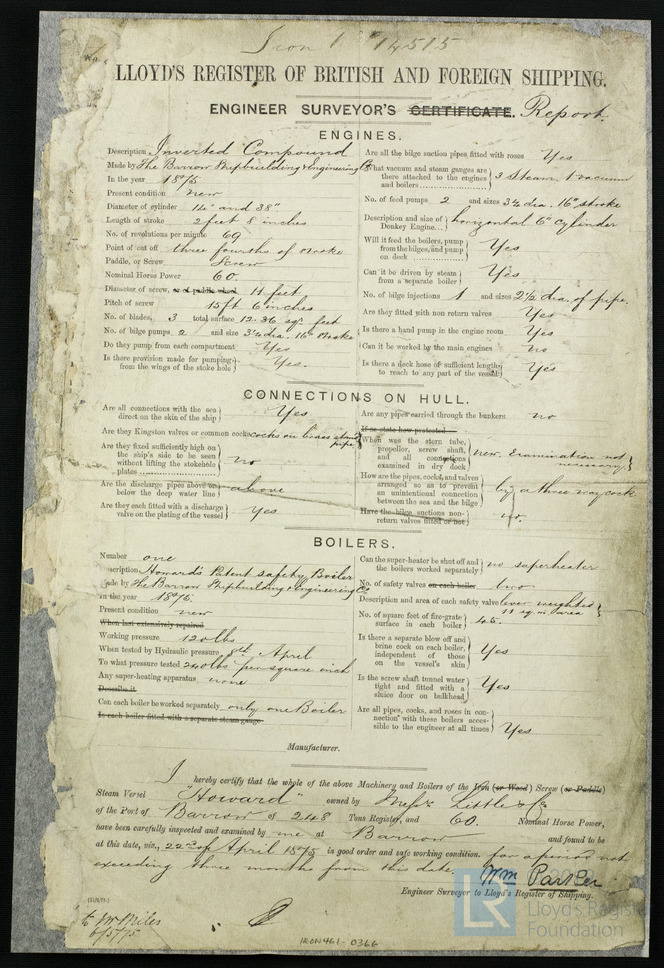 Iron No 14515
LLOYD'S REGISTER OF BRITISH AND FOREIGN SHIPPING.
ENGINEER SURVEYOR'S CERTIFICATE. Report.
ENGINES.
Description Inverted Compound
Made by The Barrow Shipbuilding & Engineering Co
In the year 1875
Present condition new
Diameter of cylinder 14" and 38"
Length of stroke 2 feet 8 inches
No. of revolutions per minute 60
Point of cut off three fourths of stroke
Paddle, or Screw Screw
Nominal Horse Power 60.
Diameter of screw, or of paddle wheel 11 feet
Pitch of screw 15 ft 6 inches
No. of blades, 3 total surface 12.36 sqr feet
No. of bilge pumps 2 and size 3¼ dia. 16" stroke
Do they pump from each compartment Yes
Is there provision made for pumping from the wings of the stoke hole Yes.
Are all the bilge suction pipes fitted with roses Yes
What vacuum and steam gauges are there attached to the engines and boilers 3 Steam 1 vacuum
No. of feed pumps 2 and sizes 3¼ dia. 16" stroke
Description and size of Donkey Engine horizontal 6" cylinder
Will it feed the boilers, pump from the bilges, and pump on deck Yes
Can it be driven by steam from a separate boiler Yes
No. of bilge injections 1 and sizes 2½ dia. of pipe.
Are they fitted with non return valves Yes
Is there a hand pump in the engine room Yes
Can it be worked by the main engines no
Is there a deck hose of sufficient length to reach to any part of the vessel Yes
CONNECTIONS ON HULL.
Are all connections with the sea direct on the skin of the ship Yes
Are they Kingston valves or common cocks cocks on brass stand pipe
Are they fixed sufficiently high on the ship's side to be seen without lifting the stokehole plates no
Are the discharge pipes above or below the deep water line above
Are they each fitted with a discharge valve on the plating of the vessel Yes
Are any pipes carried through the bunkers no
If so state how protected
When was the stern tube, propellor, screw shaft, and all connections examined in dry dock new. Examination not necessary.
How are the pipes, cocks, and valves arranged so as to prevent an unintentional connection between the sea and the bilge by a three way cock
Have the bilge suctions non-return valves fitted or not no.
BOILERS.
Number one
Description Howard's Patent safety Boiler
Made by The Barrow Shipbuilding & Engineering Co
In the year 1875.
Present condition new
When last extensively repaired
Working pressure 120 lbs
When tested by Hydraulic pressure 8th April
To what pressure tested 240 lbs per square inch
Any super-heating apparatus none
Describe it
Can each boiler be worked separately only one Boiler
Is each boiler fitted with a separate steam gauge
Can the super-heater be shut off and the boilers worked separately no superheater
No. of safety valves on each boiler two
Description and area of each safety valve lever weighted 11 sq. in. area
No. of square feet of fire-grate surface in each boiler 45.
Is there a separate blow off and brine cock on each boiler, independent of those on the vessel's skin Yes
Is the screw shaft tunnel water tight and fitted with a sluice door on bulkhead Yes
Are all pipes, cocks, and roses in connection with these boilers accessible to the engineer at all times Yes
Manufacturer.
I hereby certify that the whole of the above Machinery and Boilers of the Iron (or Wood) Screw (or Paddle)
Steam Vessel "Howard" owned by Messrs Little & Co
of the Port of Barrow of 248 Tons Register, and 60. Nominal Horse Power,
have been carefully inspected and examined by me at Barrow and found to be
at this date, viz., 22nd of April 1875 in good order and safe working condition. for a period not
exceeding three months from this date.
Wm Parker
Engineer Surveyor to Lloyd's Register of Shipping.
to Mr Miles
6/5/75
IRON461-0366
LR
Lloyd's Register
Foundation